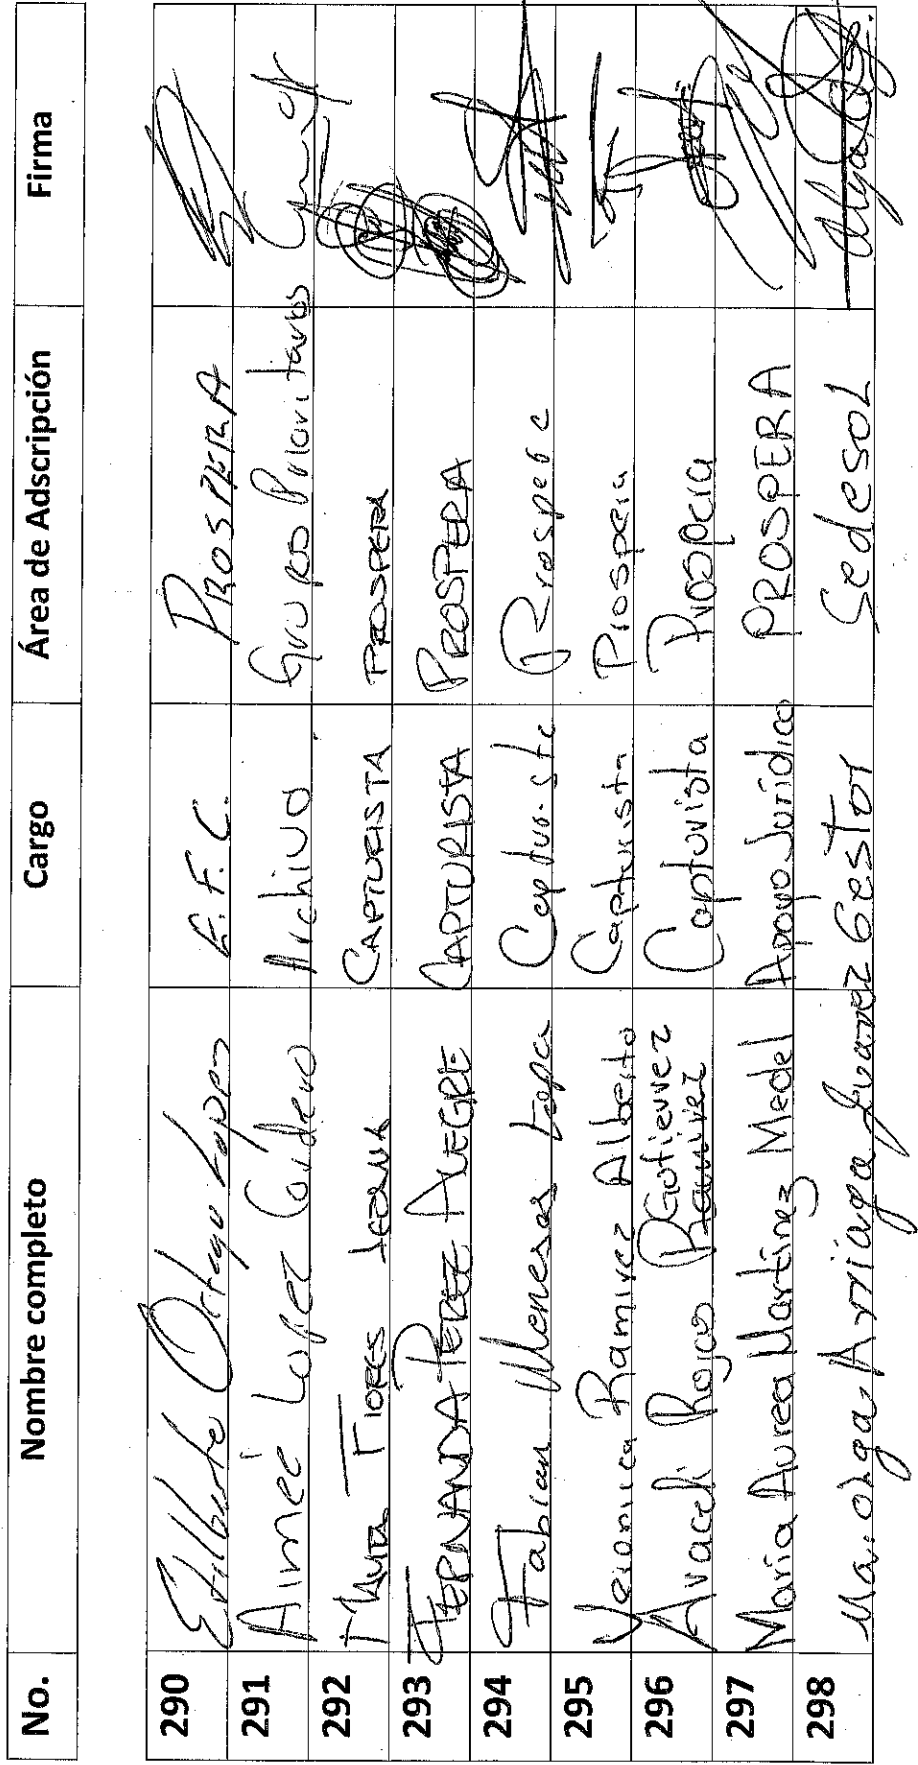 No. Nombre completo Cargo Área de Adscripción Firma
290 Edilberto Ortega Lopez E.F.C. PROSPERA
291 Aimeé Lopez Cordero Archivo Grupos Prioritarios
292 FLORES CAPTURISTA PROSPERA
293 FERNANDA PEREZ ALEGRE CAPTURISTA PROSPERA
294 Fabian Meneses Capturista Prospera
295 Veronica Ramirez Alberto Capturista Prospera
296 Araceli Rojas Gutierrez Capturista Prospera
297 María Aurea Martínez Medel Apoyo Jurídico PROSPERA
298 Ma. Olga Arriaga Juarez Gestor Sedesol